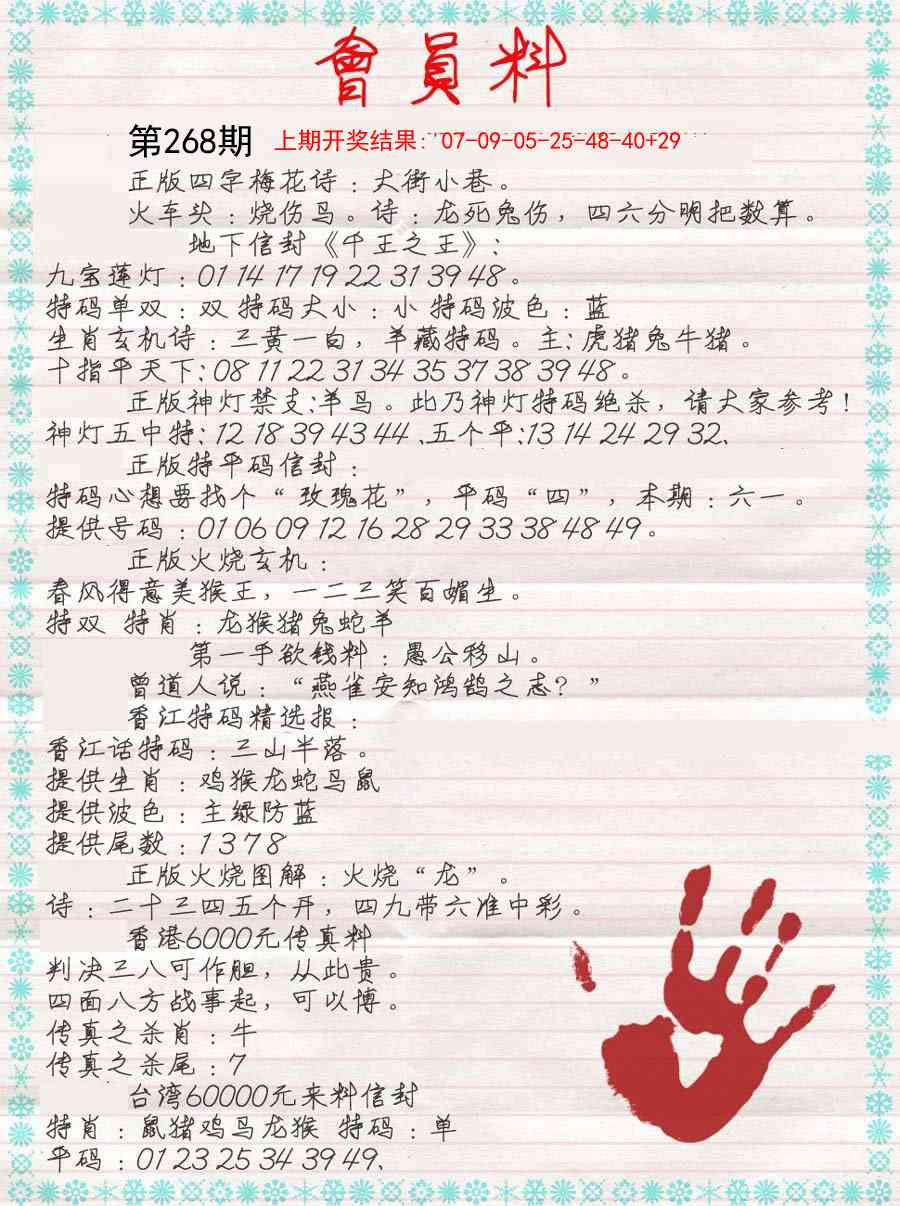 會員料
第268期 上期开奖结果: 07-09-05-25-48-40+29
正版四字梅花诗：大街小巷。
火车头：烧伤鸟。诗：龙死兔伤，四六分明把数算。
地下信封《千王之王》:
九宝莲灯：01 14 17 19 22 31 39 48。
特码单双：双 特码大小：小 特码波色：蓝
生肖玄机诗：三黄一白，羊藏特码。主: 虎猪兔牛猪。
十指平天下: 08 11 22 31 34 35 37 38 39 48。
正版神灯禁支:羊鸟。此乃神灯特码绝杀，请大家参考！
神灯五中特: 12 18 39 43 44 、五个平:13 14 24 29 32、
正版特平码信封：
特码心想要找个“玫瑰花”，平码“四”，本期：六一。
提供号码：01 06 09 12 16 28 29 33 38 48 49。
正版火烧玄机：
春风得意美猴王，一二三笑百媚生。
特双 特肖：龙猴猪兔蛇羊
第一手欲钱料：愚公移山。
曾道人说：“燕雀安知鸿鹄之志？”
香江特码精选报：
香江话特码：三山半落。
提供生肖：鸡猴龙蛇马鼠
提供波色：主绿防蓝
提供尾数：1 3 7 8
正版火烧图解：火烧“龙”。
诗：二十三四五个开，四九带六准中彩。
香港6000元传真料
判决三八可作胆，从此贵。
四面八方战事起，可以博。
传真之杀肖：牛
传真之杀尾：7
台湾60000元来料信封
特肖：鼠猪鸡马龙猴 特码：单
平码：01 23 25 34 39 49、